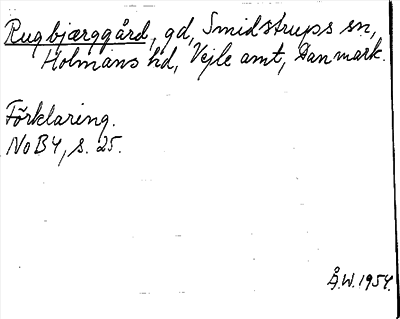 Rugbjærggård, gd, Smidstrups sn,
Holmans hd, Vejle amt, Danmark.
Förklaring.
NoB4, s. 25.
Å.W. 1954.